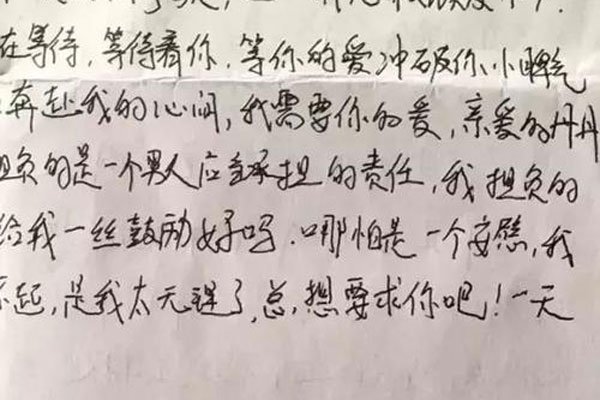 在等待，等待着你，等你的爱冲破你小脾气
奔赴我的心间，我需要你的爱，亲爱的丹丹
担负的是一个男人应该承担的责任，我担负的
给我一丝鼓励好吗.哪怕是一个安慰，我
不起，是我太无理了，总想要求你吧！一天